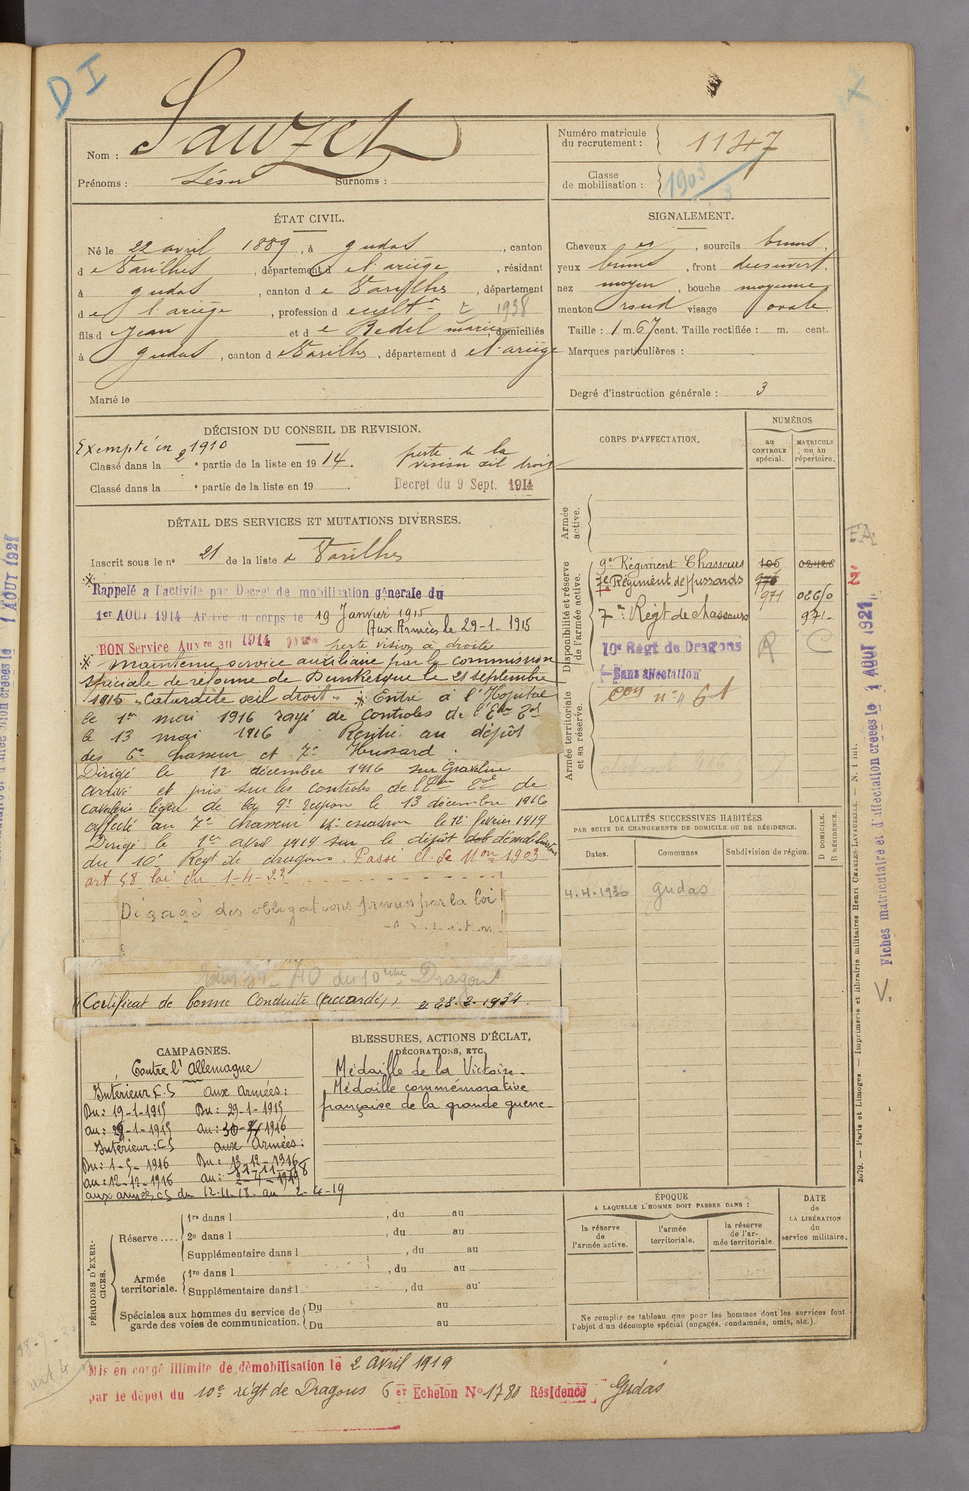 D I
Nom : Sauzet
Prénoms : Léon Surnoms :
Numéro matricule du recrutement : 1147
Classe de mobilisation : 1903
ÉTAT CIVIL.
Né le 22 avril 1889, à Gudas, canton
de Varilhes, département de l'ariège, résidant
à Gudas, canton de Varilhes, département
de l'ariège, profession de cult^r 1938
fils de Jean et de Redel marie, domiciliés
à Gudas, canton de Varilhes, département de l'ariège
Marié le
SIGNALEMENT.
Cheveux et, sourcils bruns,
yeux bruns, front découvert,
nez moyen, bouche moyenne,
menton rond visage ovale
Taille : 1 m. 67 cent. Taille rectifiée : m. cent.
Marques particulières :
Degré d'instruction générale : 3
DÉCISION DU CONSEIL DE REVISION.
Exempté en 1910
Classé dans la 2e partie de la liste en 1914. perte de la vision œil droit
Classé dans la e partie de la liste en 19 Décret du 9 Sept. 1914
DÉTAIL DES SERVICES ET MUTATIONS DIVERSES.
Inscrit sous le n° 21 de la liste de Varilhes
Rappelé à l'activité par Décret de mobilisation générale du
1er AOUT 1914 Arrivé au corps le 19 Janvier 1915
Aux Armées le 29-1-1915
BON Service Aux^re au 1914 pour perte vision œ droite
* Maintenu service auxiliaire par la commission
spéciale de réforme de Dunkerque le 21 septembre
1915 "Cataracte œil droit". * Entré à l'Hopital
le 1er mai 1916 rayé des controles de l'
le 13 mai 1916 Rentré au dépôt
des 6e chasseur et 7e Hussard.
Dirigé le 12 décembre 1916 sur Graveline
arrivé et pris sur les controles de l' de
cavalerie légère de la 9e région le 13 décembre 1916
affecté au 7e chasseur 4e escadron le 12 février 1919
Dirigé le 1er avril 1919 sur le dépôt démobilisateur
du 10e Régt de dragons. Passé cl. de 1903
art 58 loi du 1-4-23
Dégagé des obligations prévues par la loi
du 10ème Dragons
Certificat de bonne Conduite "accordé", le 28.2.1934.
CORPS D'AFFECTATION.
NUMÉROS
au CONTROLE spécial.
MATRICULE ou au répertoire.
Armée active.
Disponibilité et réserve de l'armée active.
9e Régiment Chasseurs 105
7e Régiment de Hussards 971 02610
7me Régt de chasseurs 971
10e Régt de Dragons R C
Sans affectation
Armée territoriale et sa réserve.
LOCALITÉS SUCCESSIVES HABITÉES
PAR SUITE DE CHANGEMENTS DE DOMICILE OU DE RÉSIDENCE.
Dates. Communes Subdivision de région. D DOMICILE. R RÉSIDENCE.
4.4.1930 Gudas
CAMPAGNES.
Contre l'Allemagne
Intérieur CS aux Armées :
Du : 19-1-1915 Du : 29-1-1915
au : 28-1-1915 au : 30-4-1916
Intérieur : CS aux Armées :
Du : 1-5-1916 Du : 13-12-1916
au : 12-12-1916 au : 11-11-1918
aux armées CS du 12-11-18 au 2-4-19
BLESSURES, ACTIONS D'ÉCLAT,
DÉCORATIONS, ETC.
Médaille de la Victoire
Médaille commémorative
française de la grande guerre
PÉRIODES D'EXERCICES.
Réserve.... 1re dans l , du au
2e dans l , du au
Supplémentaire dans l , du au
Armée territoriale. 1re dans l , du au
Supplémentaire dans l , du au
Spéciales aux hommes du service de garde des voies de communication. Du au
Du au
ÉPOQUE
A LAQUELLE L'HOMME DOIT PASSER DANS :
la réserve de l'armée active.
l'armée territoriale.
la réserve de l'armée territoriale.
DATE de LA LIBÉRATION du service militaire.
Ne remplir ce tableau que pour les hommes dont les services font
l'objet d'un décompte spécial (engagés, condamnés, omis, etc.).
Mis en congé illimité de démobilisation le 2 avril 1919
par le dépôt du 10e régt de Dragons 6 er Echelon No 1780 Résidence Gudas
Fiches matriculaire et d'affectation créées le 1 AOUT 1921
Paris et Limoges. — Imprimerie et librairie militaires Henri CHARLES-LAVAUZELLE.